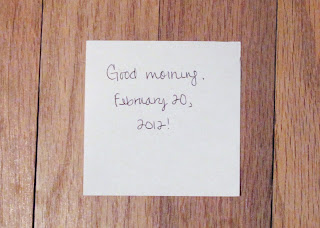 Good morning.
February 20,
2012!